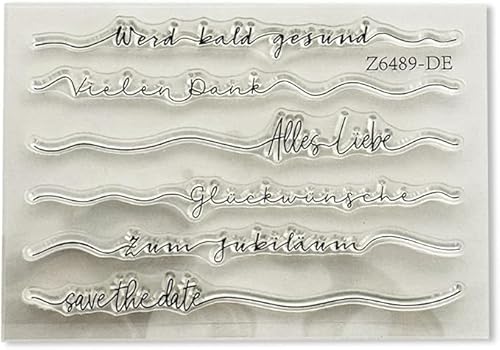 Werd bald gesund
Z6489-DE
Vielen Dank
Alles Liebe
Glückwünsche
Zum Jubiläum
save the date